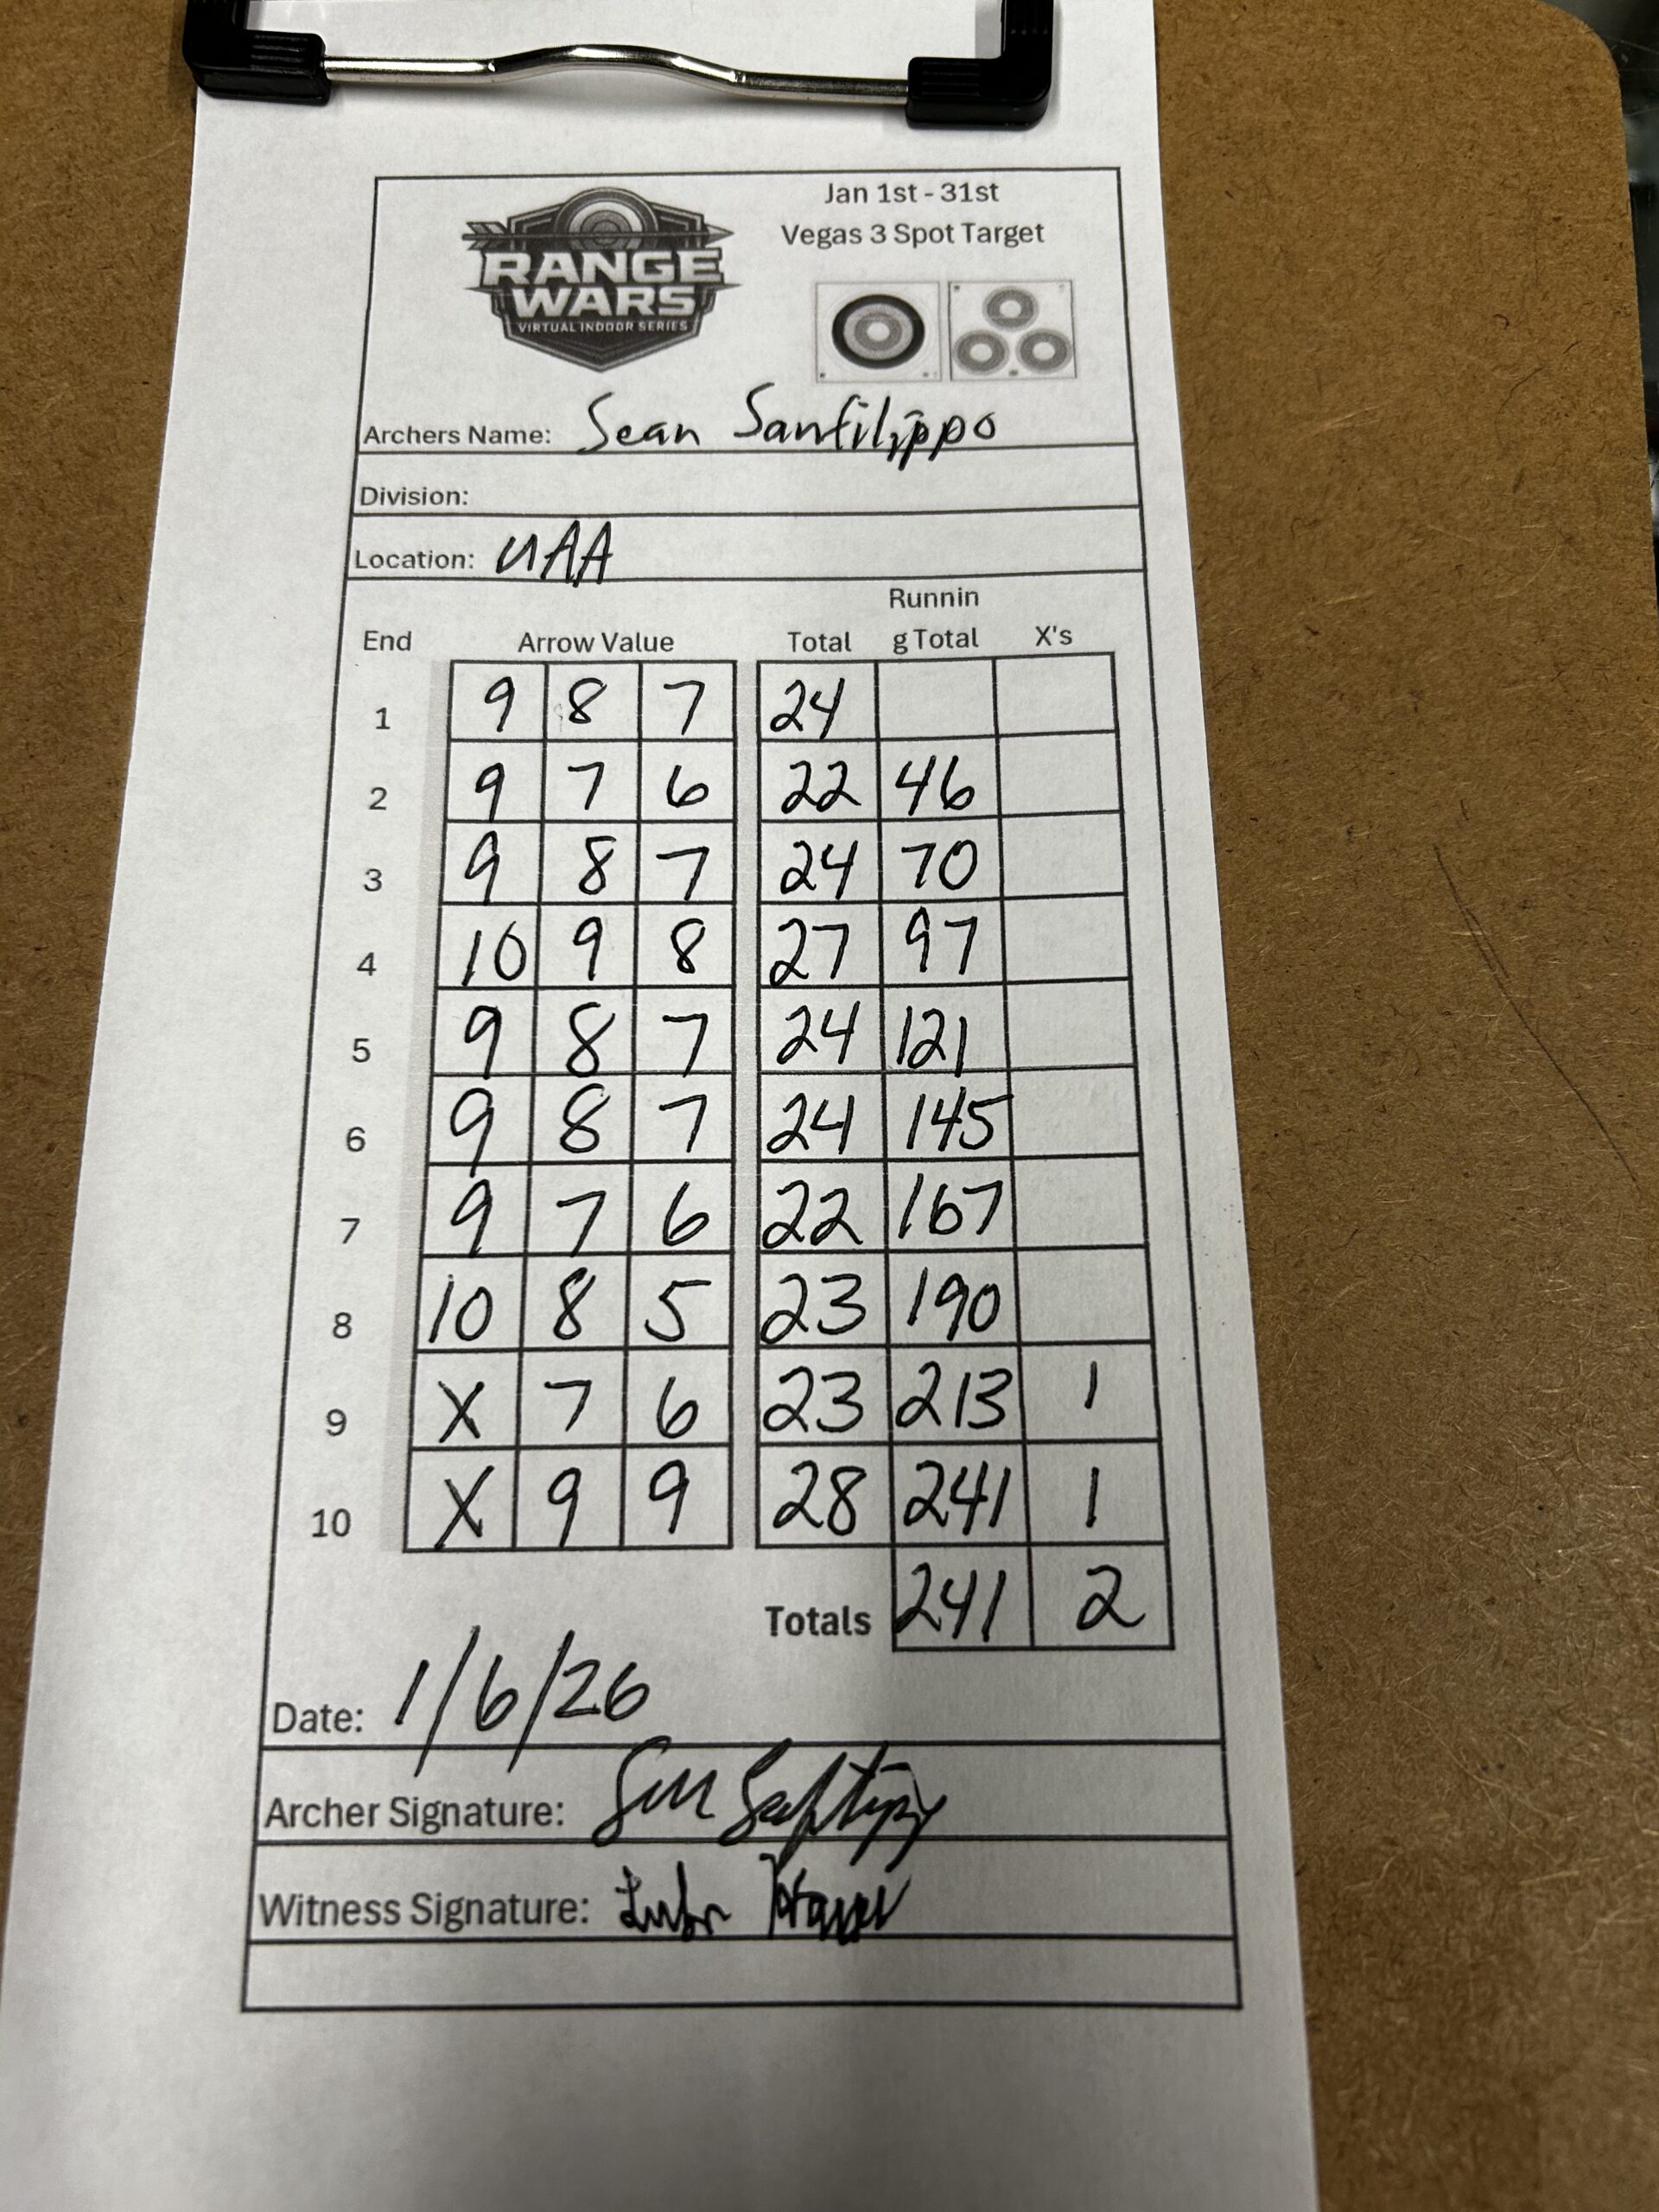 Jan 1st - 31st
Vegas 3 Spot Target
RANGE
WARS
VIRTUAL INDOOR SERIES
Archers Name: Sean Sanfilippo
Division:
Location: UAA
Runnin
End Arrow Value Total g Total X's
1 9 8 7 24
2 9 7 6 22 46
3 9 8 7 24 70
4 10 9 8 27 97
5 9 8 7 24 121
6 9 8 7 24 145
7 9 7 6 22 167
8 10 8 5 23 190
9 X 7 6 23 213 1
10 X 9 9 28 241 1
Totals 241 2
Date: 1/6/26
Archer Signature:
Witness Signature: